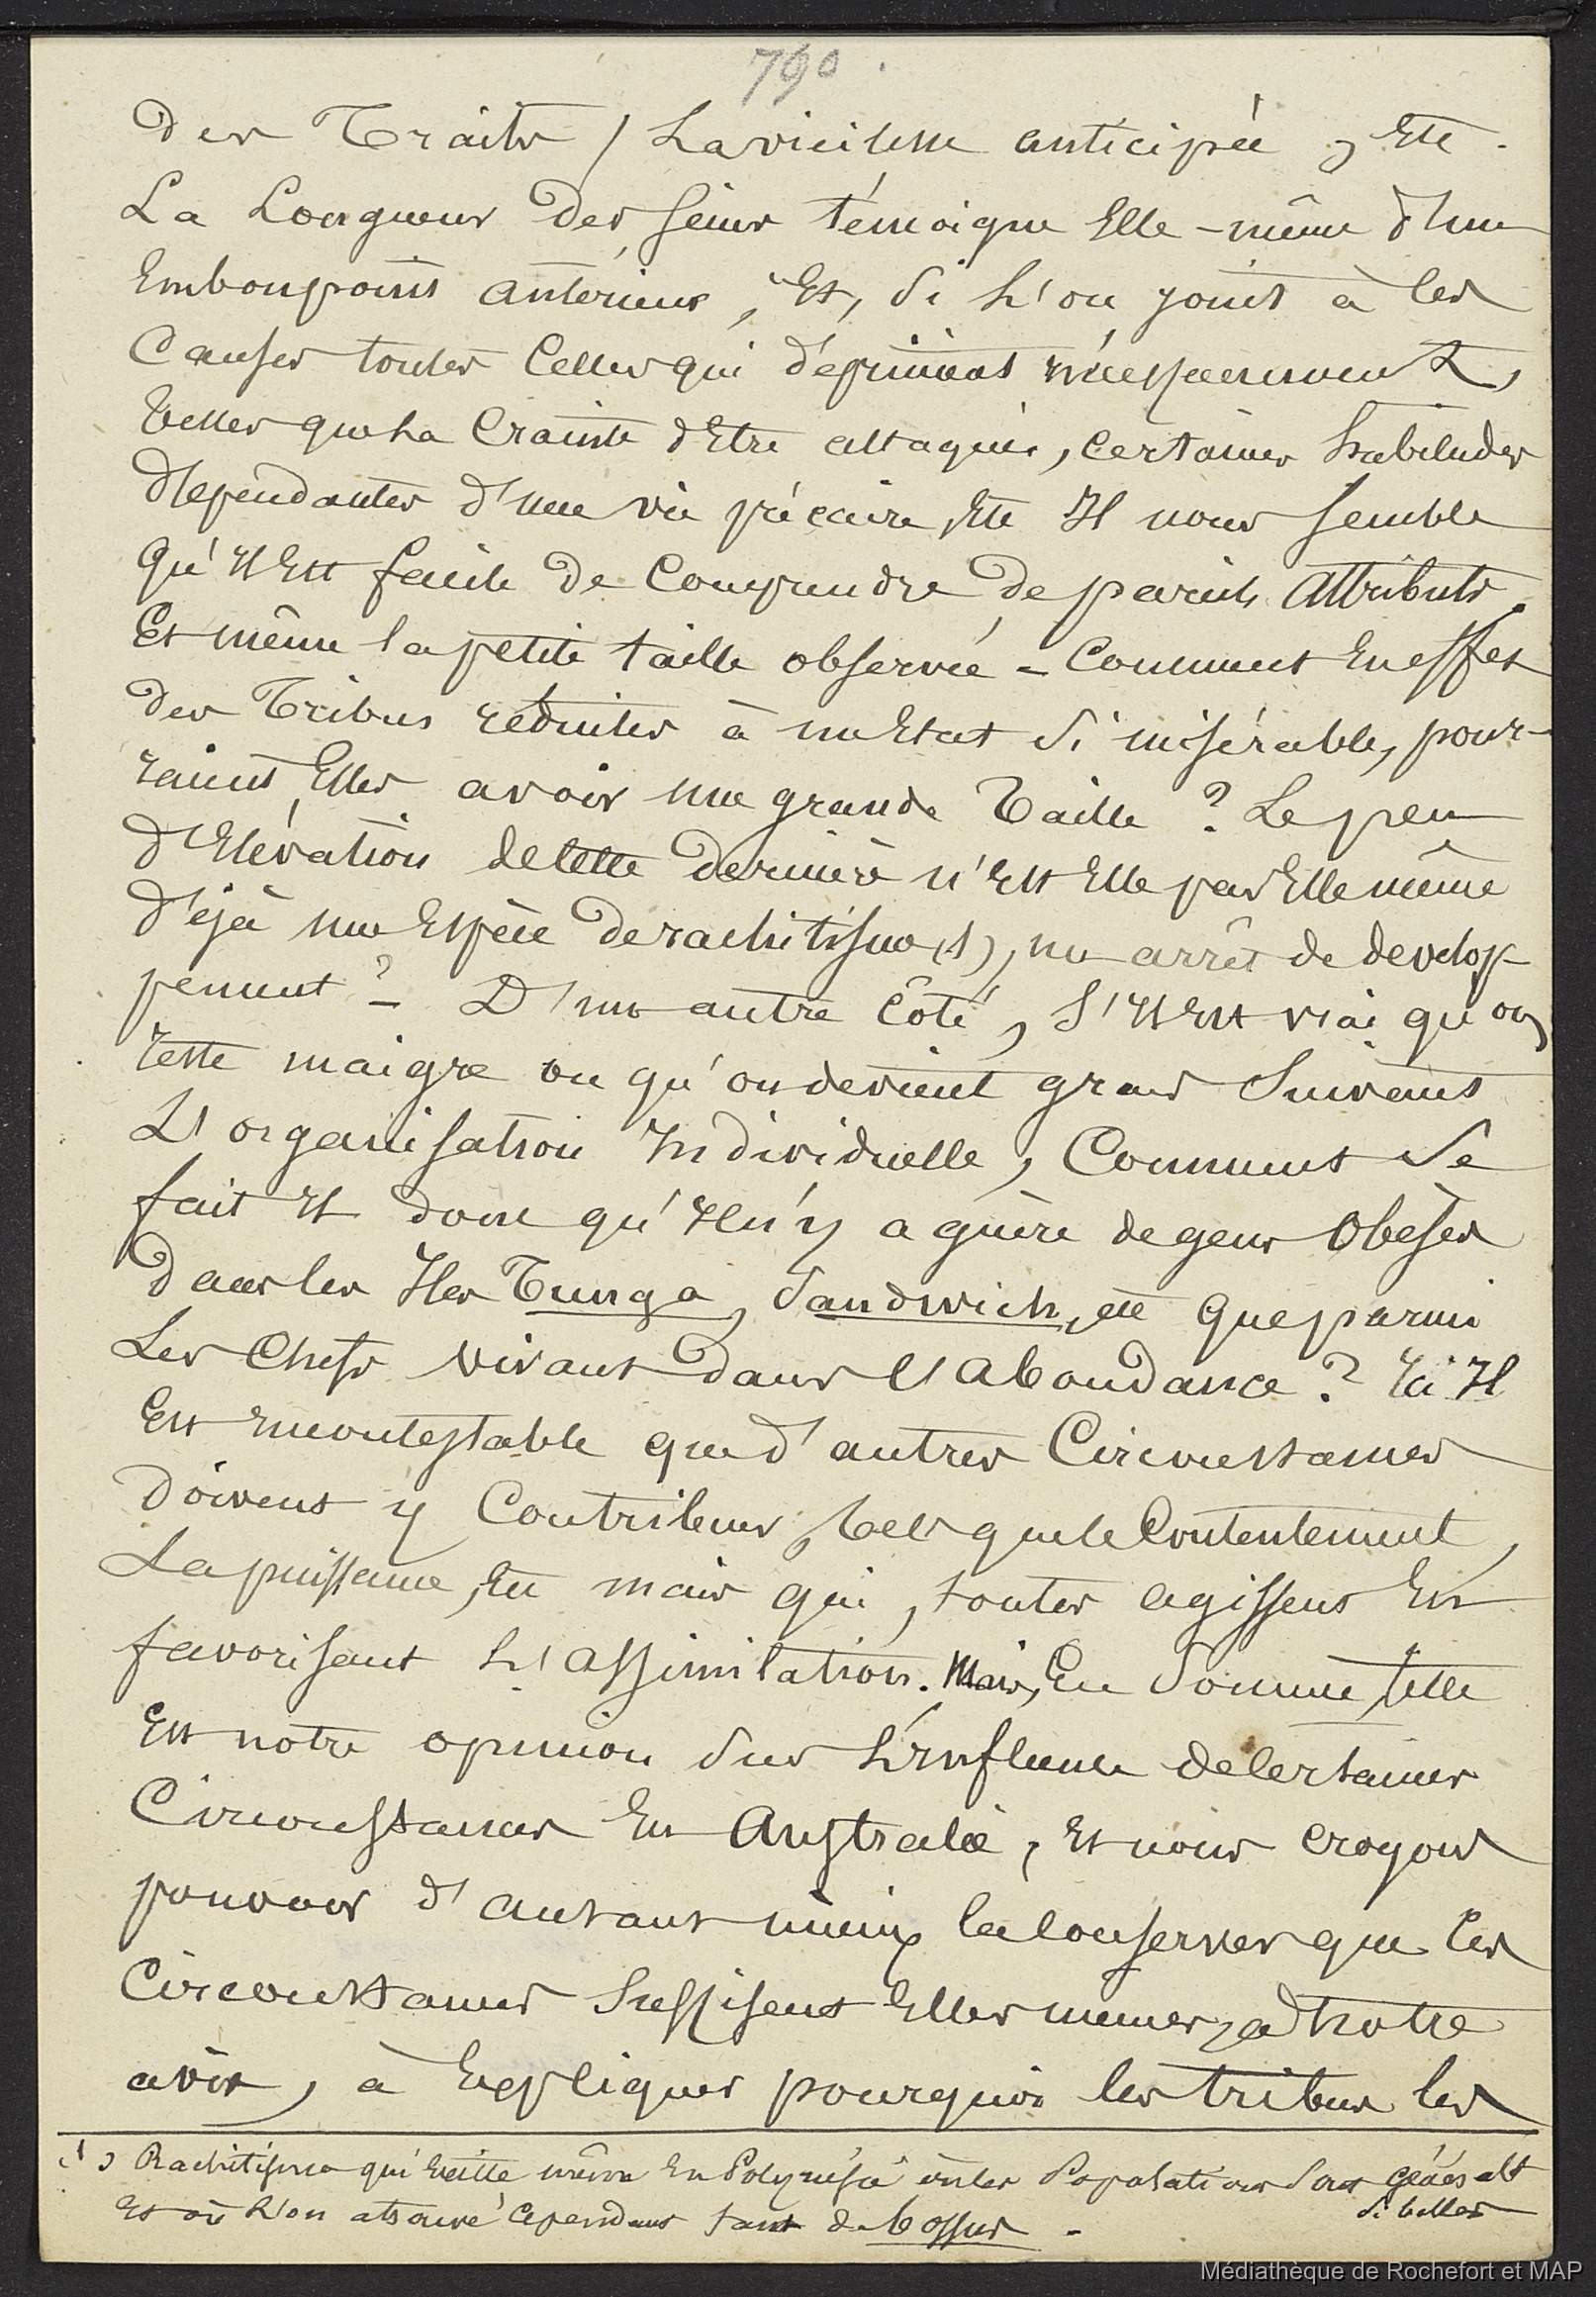 790.
des Traits, La vieillesse anticipée, Etc.
La Longueur des seins témoigne Elle-même d'un
Embonpoint antérieur, Et, si L'on joint à ces
Causes toutes Celles qui dépriment nécessairement,
telles que La Crainte d'Etre attaqués, certaines habitudes
dépendantes d'une vie précaire, Etc Il nous semble
qu'Il Est facile de Comprendre de pareils attributs
Et même la petite taille observée - Comment En effet
des Tribus réduites à un Etat si misérable, pour-
raient Elles avoir une grande Taille ? Le peu
d'Elévation de cette dernière n'Est Elle pas Elle même
déjà une Espèce de rachitisme (1), un arrêt de dévelop-
pement ? - D'un autre Côté, s'Il Est vrai qu'on
reste maigre ou qu'on devient gras suivant
L'organisation Individuelle, Comment se
fait Il donc qu'Il n'y a guère de gens obèses
dans les Iles Tunga, Sandwich, etc que parmi
Les Chefs vivant dans L'abondance ? Ici Il
Est Incontestable que d'autres Circonstances
doivent y Contribuer, tels que le Contentement,
La puissance, Etc mais qui, toutes agissent En
favorisant L'assimilation. Mais, En somme, telle
Est notre opinion sur L'Influence de certaines
Circonstances En Australie, Et nous croyons
pouvoir d'autant mieux la Conserver que ces
Circonstances suffisent Elles mêmes, à notre
avis, à Expliquer pourquoi les tribus les
(1) Rachitisme qui Existe même En Polynésie où les Populations sont généralt
si belles
Et où L'on a trouvé Cependant tant de bossus -
Médiathèque de Rochefort et MAP